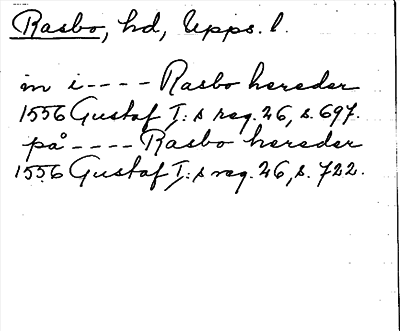 Rasbo, hd, Upps. l.
in i---- Rasbo hereder
1556 Gustaf I:s reg. 26, s. 697.
på---- Rasbo hereder
1556 Gustaf I:s reg. 26, s. 722.